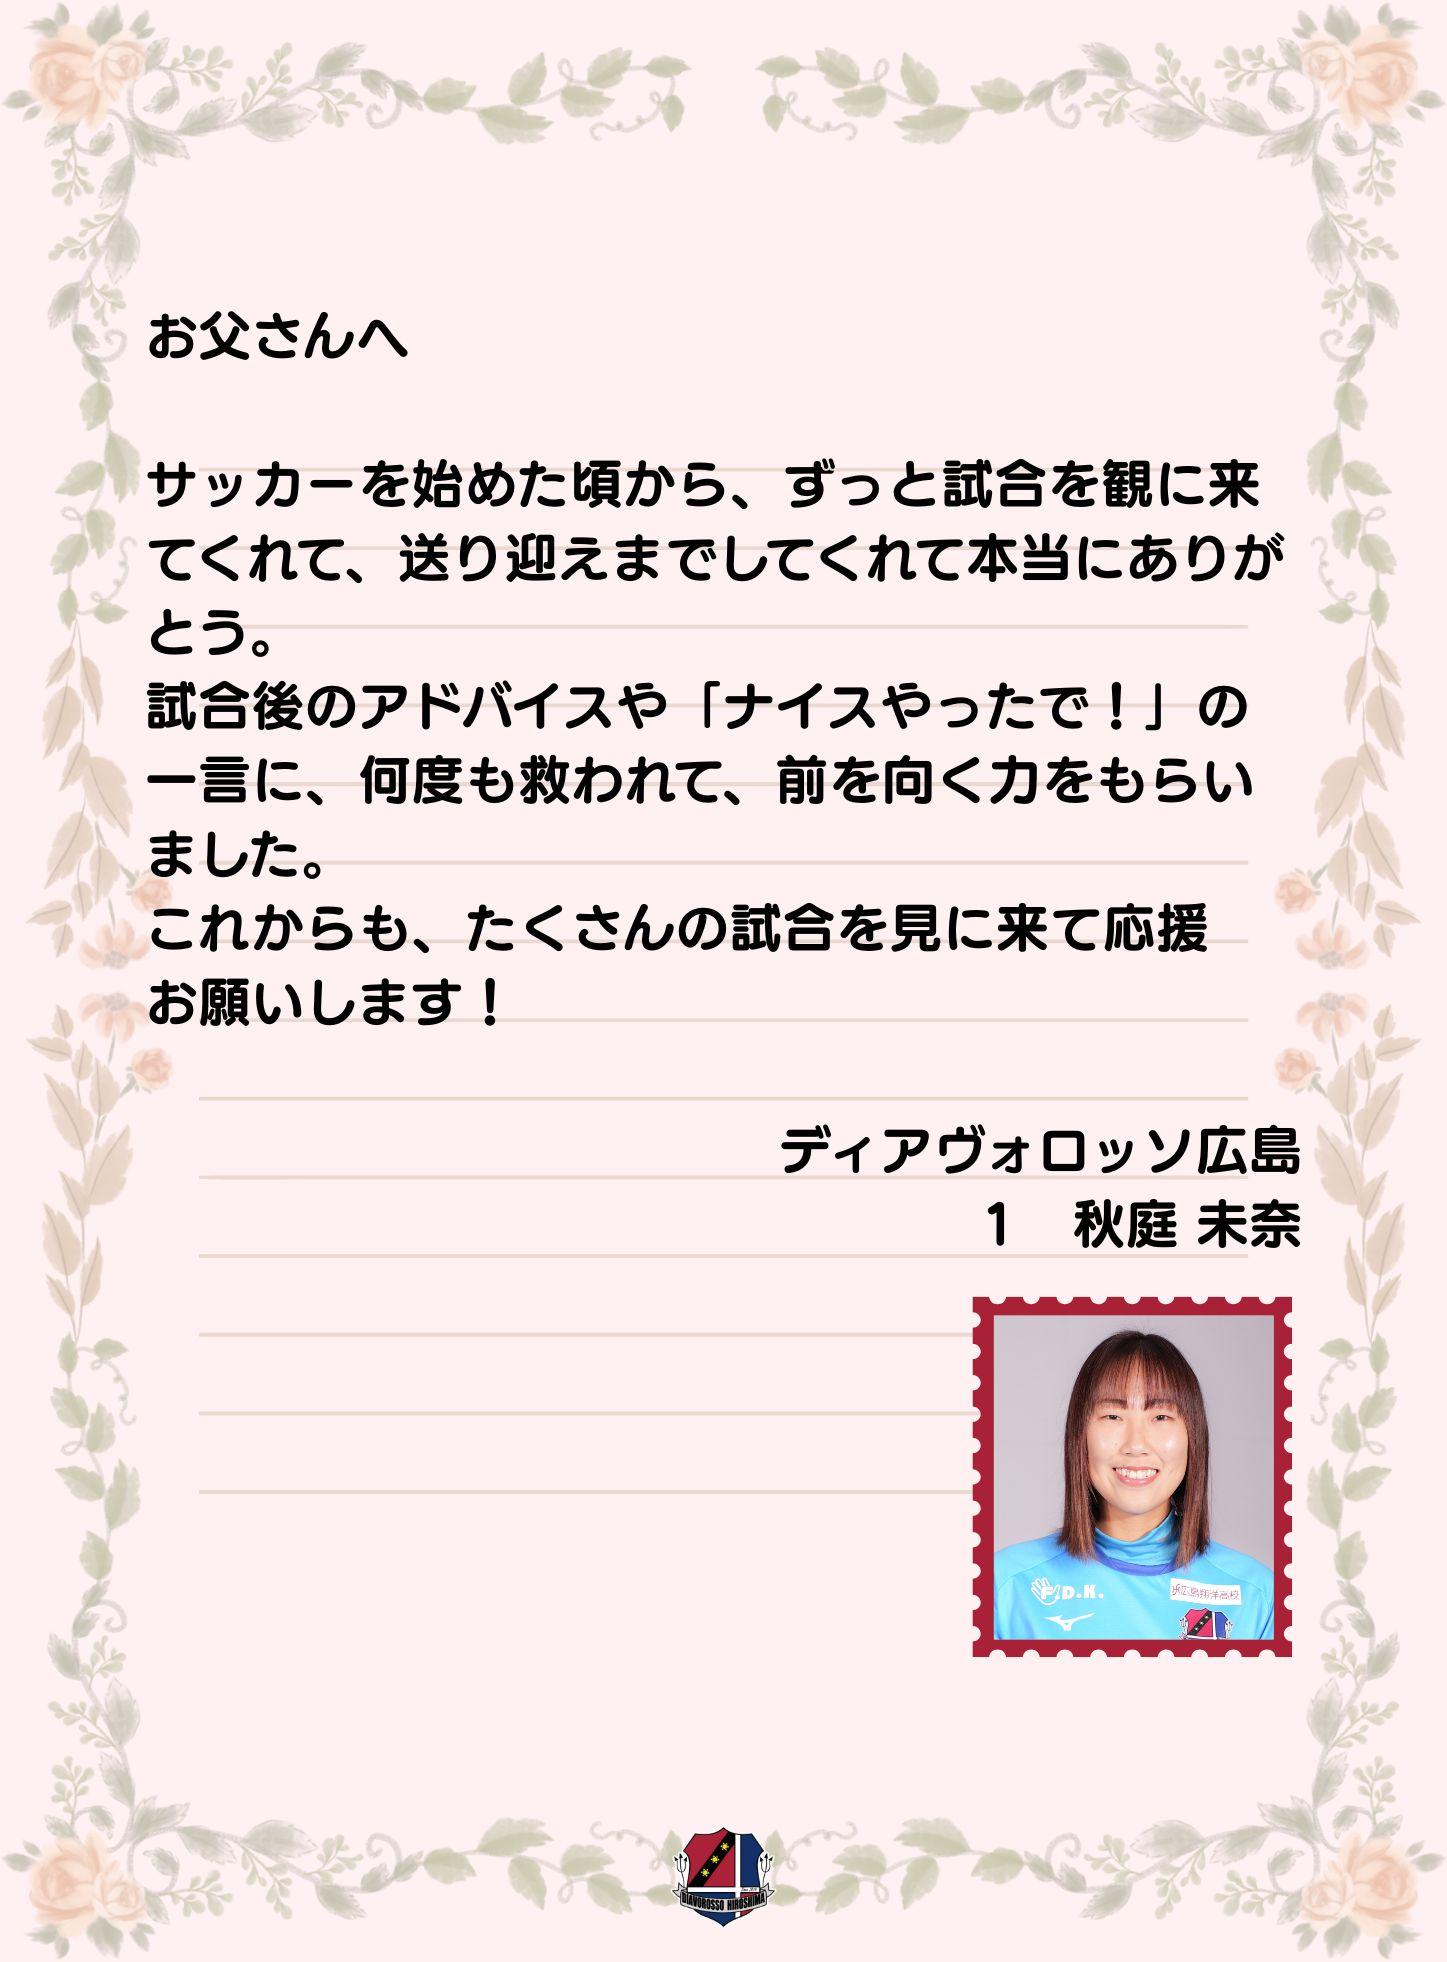 お父さんへ
サッカーを始めた頃から、ずっと試合を観に来
てくれて、送り迎えまでしてくれて本当にありが
とう。
試合後のアドバイスや「ナイスやったで！」の
一言に、何度も救われて、前を向く力をもらい
ました。
これからも、たくさんの試合を見に来て応援
お願いします！
ディアヴォロッソ広島
1　秋庭 未奈
F.D.K.
広島翔洋高校
DIAVOROSSO HIROSHIMA